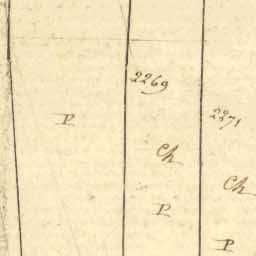 2269
2271
P
Ch
Ch
P
P